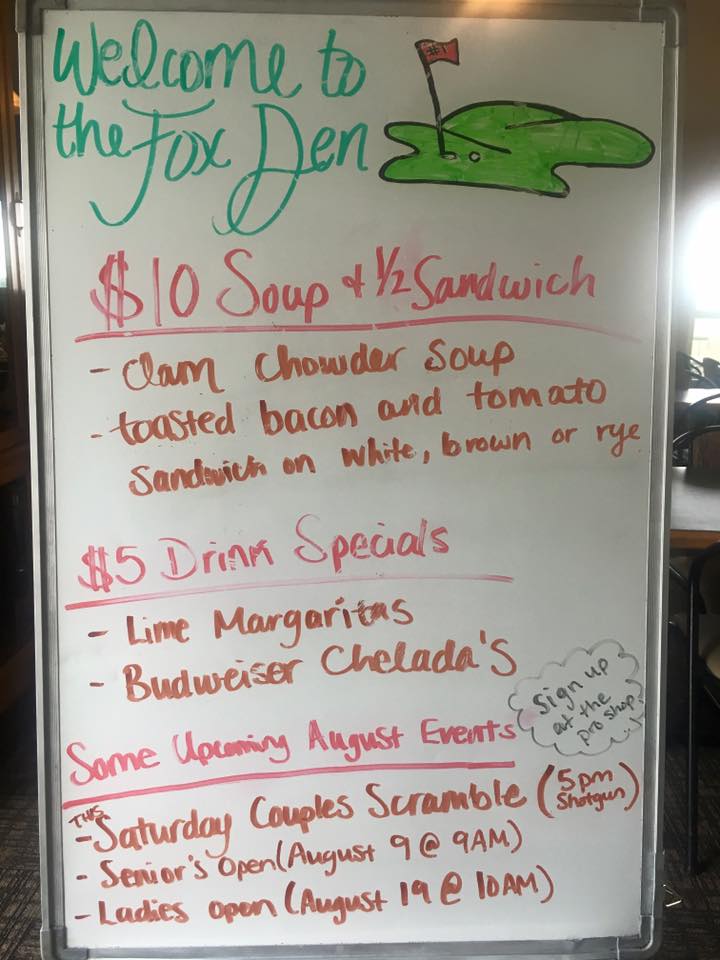 Welcome to
the Fox Den
#1
$10 Soup & 1/2 Sandwich
- Clam Chowder Soup
- toasted bacon and tomato
sandwich on white, brown or rye
$5 Drink Specials
- Lime Margaritas
- Budweiser Chelada's
Sign up
at the
pro shop
Some Upcoming August Events
- THIS Saturday Couples Scramble (5pm
Shotgun)
- Senior's Open (August 9 @ 9AM)
- Ladies open (August 19 @ 10AM)